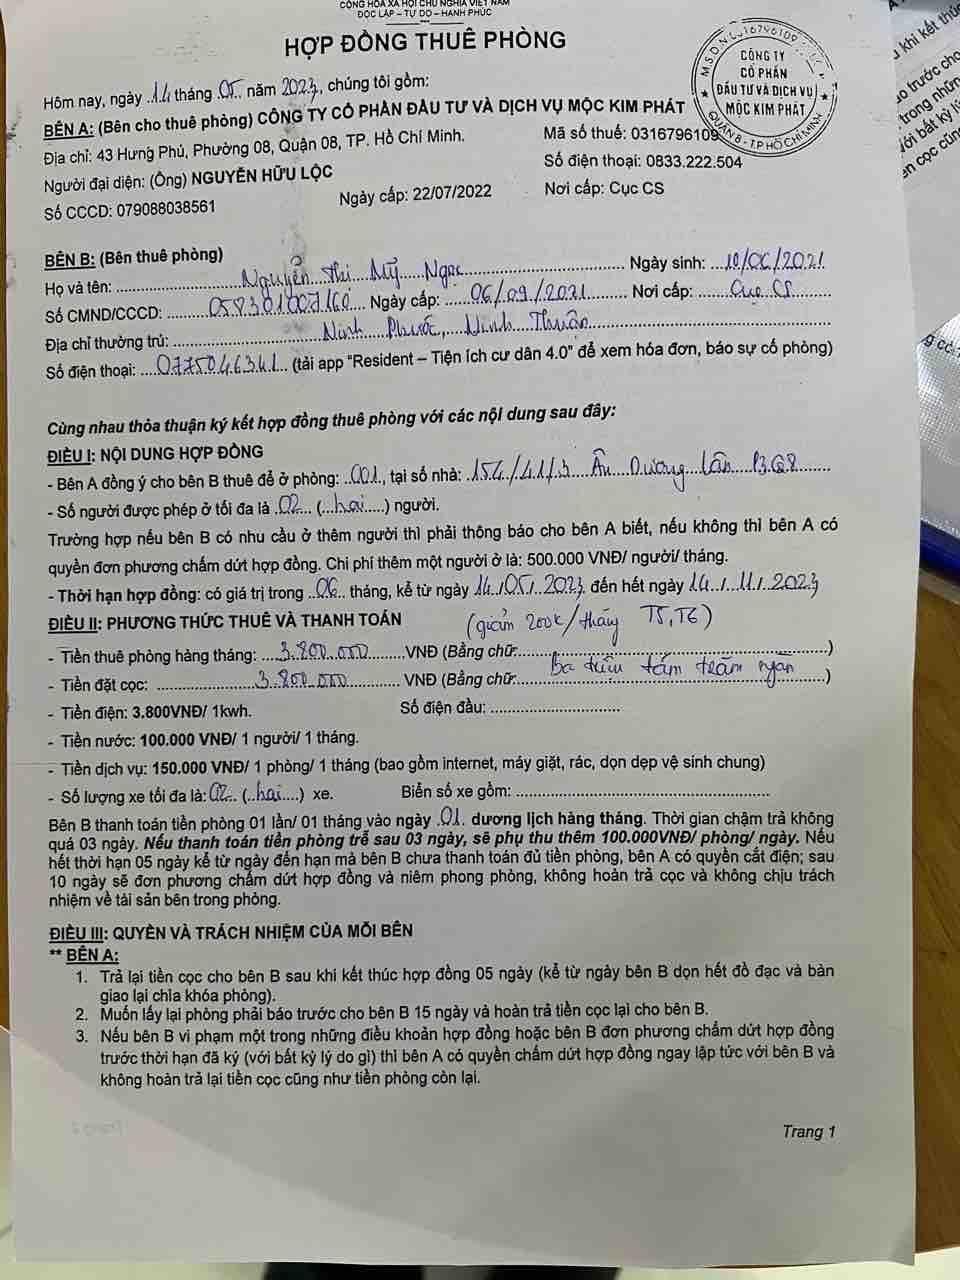 CỘNG HÒA XÃ HỘI CHỦ NGHĨA VIỆT NAM
ĐỘC LẬP – TỰ DO – HẠNH PHÚC
HỢP ĐỒNG THUÊ PHÒNG
M.S.D.N: 0316796109
CÔNG TY
CỔ PHẦN
ĐẦU TƯ VÀ DỊCH VỤ
MỘC KIM PHÁT
QUẬN 8 - T.P HỒ CHÍ MINH
Hôm nay, ngày 14 tháng 05 năm 2023, chúng tôi gồm:
BÊN A: (Bên cho thuê phòng) CÔNG TY CỔ PHẦN ĐẦU TƯ VÀ DỊCH VỤ MỘC KIM PHÁT
Địa chỉ: 43 Hưng Phú, Phường 08, Quận 08, TP. Hồ Chí Minh. Mã số thuế: 0316796109
Người đại diện: (Ông) NGUYỄN HỮU LỘC Số điện thoại: 0833.222.504
Số CCCD: 079088038561 Ngày cấp: 22/07/2022 Nơi cấp: Cục CS
BÊN B: (Bên thuê phòng)
Họ và tên: Nguyễn Thị Mỹ Ngọc Ngày sinh: 10/06/2021
Số CMND/CCCD: 058301007160 Ngày cấp: 06/09/2021 Nơi cấp: Cục CS
Địa chỉ thường trú: Ninh Phước, Ninh Thuận
Số điện thoại: 0775046341 (tải app "Resident – Tiện ích cư dân 4.0" để xem hóa đơn, báo sự cố phòng)
Cùng nhau thỏa thuận ký kết hợp đồng thuê phòng với các nội dung sau đây:
ĐIỀU I: NỘI DUNG HỢP ĐỒNG
- Bên A đồng ý cho bên B thuê để ở phòng: 001, tại số nhà: 154/41/3 Âu Dương Lân P3Q8
- Số người được phép ở tối đa là 02 (hai) người.
Trường hợp nếu bên B có nhu cầu ở thêm người thì phải thông báo cho bên A biết, nếu không thì bên A có
quyền đơn phương chấm dứt hợp đồng. Chi phí thêm một người ở là: 500.000 VNĐ/ người/ tháng.
- Thời hạn hợp đồng: có giá trị trong 06 tháng, kể từ ngày 14/05/2023 đến hết ngày 14/11/2023
ĐIỀU II: PHƯƠNG THỨC THUÊ VÀ THANH TOÁN (giảm 200k/tháng T5,T6)
- Tiền thuê phòng hàng tháng: 3.800.000 VNĐ (Bằng chữ: )
- Tiền đặt cọc: 3.800.000 VNĐ (Bằng chữ: Ba triệu tám trăm ngàn)
- Tiền điện: 3.800VNĐ/ 1kwh. Số điện đầu:
- Tiền nước: 100.000 VNĐ/ 1 người/ 1 tháng.
- Tiền dịch vụ: 150.000 VNĐ/ 1 phòng/ 1 tháng (bao gồm internet, máy giặt, rác, dọn dẹp vệ sinh chung)
- Số lượng xe tối đa là: 02 (hai) xe. Biển số xe gồm:
Bên B thanh toán tiền phòng 01 lần/ 01 tháng vào ngày 01 dương lịch hàng tháng. Thời gian chậm trả không
quá 03 ngày. Nếu thanh toán tiền phòng trễ sau 03 ngày, sẽ phụ thu thêm 100.000VNĐ/ phòng/ ngày. Nếu
hết thời hạn 05 ngày kể từ ngày đến hạn mà bên B chưa thanh toán đủ tiền phòng, bên A có quyền cắt điện; sau
10 ngày sẽ đơn phương chấm dứt hợp đồng và niêm phong phòng, không hoàn trả cọc và không chịu trách
nhiệm về tài sản bên trong phòng.
ĐIỀU III: QUYỀN VÀ TRÁCH NHIỆM CỦA MỖI BÊN
** BÊN A:
1. Trả lại tiền cọc cho bên B sau khi kết thúc hợp đồng 05 ngày (kể từ ngày bên B dọn hết đồ đạc và bàn
giao lại chìa khóa phòng).
2. Muốn lấy lại phòng phải báo trước cho bên B 15 ngày và hoàn trả tiền cọc lại cho bên B.
3. Nếu bên B vi phạm một trong những điều khoản hợp đồng hoặc bên B đơn phương chấm dứt hợp đồng
trước thời hạn đã ký (với bất kỳ lý do gì) thì bên A có quyền chấm dứt hợp đồng ngay lập tức với bên B và
không hoàn trả lại tiền cọc cũng như tiền phòng còn lại.
Trang 1
khi kết thúc
trước cho
trong những
với bất kỳ
cọc cũng